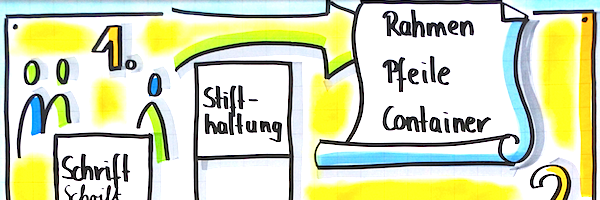 1.
Schrift
Schrift
Stift-
haltung
Rahmen
Pfeile
Container
2